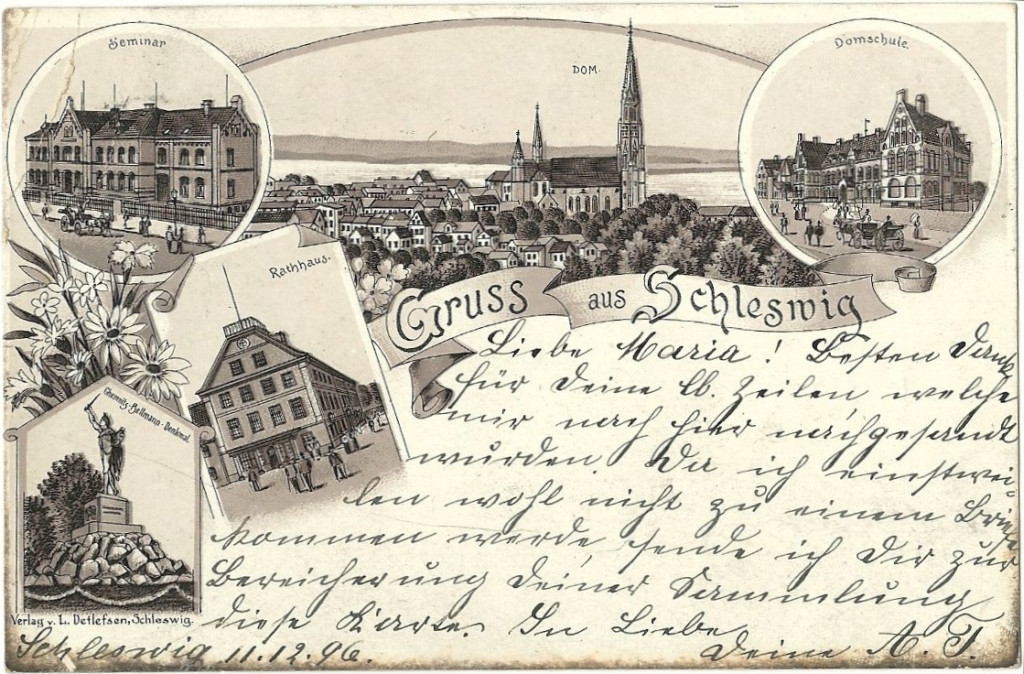 Seminar
DOM.
Domschule.
Rathhaus.
Gruss aus Schleswig
Chemnitz-Bellmann-Denkmal.
Liebe Maria! Besten Dank
für Deine lb. Zeilen welche
mir nach hier nachgesandt
wurden. Da ich einstwei-
len wohl nicht zu einem Brief
kommen werde, sende ich Dir zur
Bereicherung Deiner Sammlung
diese Karte. In Liebe
Deine A. T.
Verlag v. L. Detlefsen, Schleswig.
Schleswig 11.12.96.